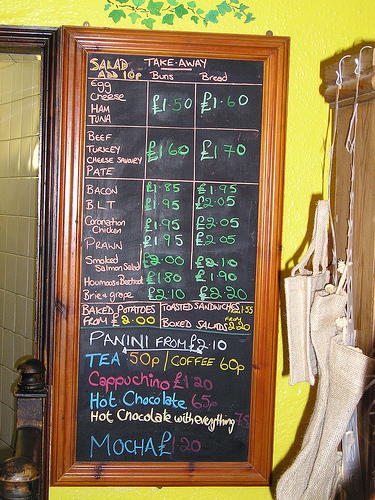 SALAD TAKE-AWAY
ADD 10p Buns Bread
Egg
Cheese £1.50 £1.60
HAM
TUNA
BEEF
TURKEY £1.60 £1.70
CHEESE SAVOURY
PATE
BACON £1.85 £1.95
B.L.T £1.95 £2.05
Coronation Chicken £1.95 £2.05
PRAWN £1.95 £2.05
Smoked £2.00 £2.10
Salmon Salad
Houmous & Beetroot £1.80 £1.90
Brie & grape £2.10 £2.20
BAKED POTATOES TOASTED SANDWICHES £1.55
FROM £2.00 BOXED SALADS FROM 2.20
PANINI FROM £2.10
TEA 50p / COFFEE 60p
Cappuchino £1.20
Hot Chocolate 65p
Hot Chocolate with everything 75
MOCHA £1.20